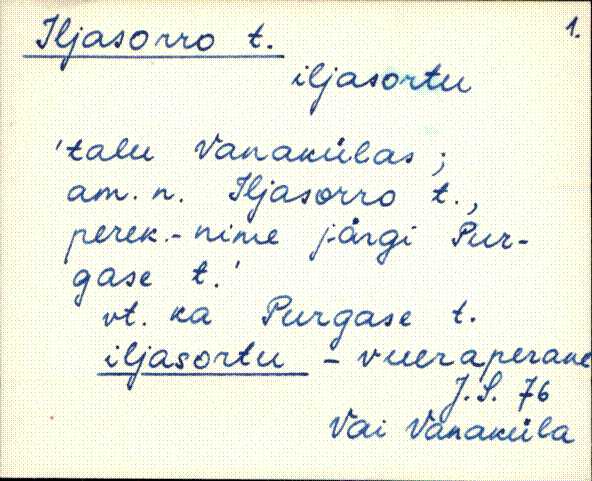 Iljasorro t. 1.
iljasortu
'talu Vanakülas;
am. n. Iljasorro t.,
perek.-nime järgi Pur-
gase t.'
vt. ka Purgase t.
iljasortu - vueraperane
J. S. 76
Vai Vanaküla